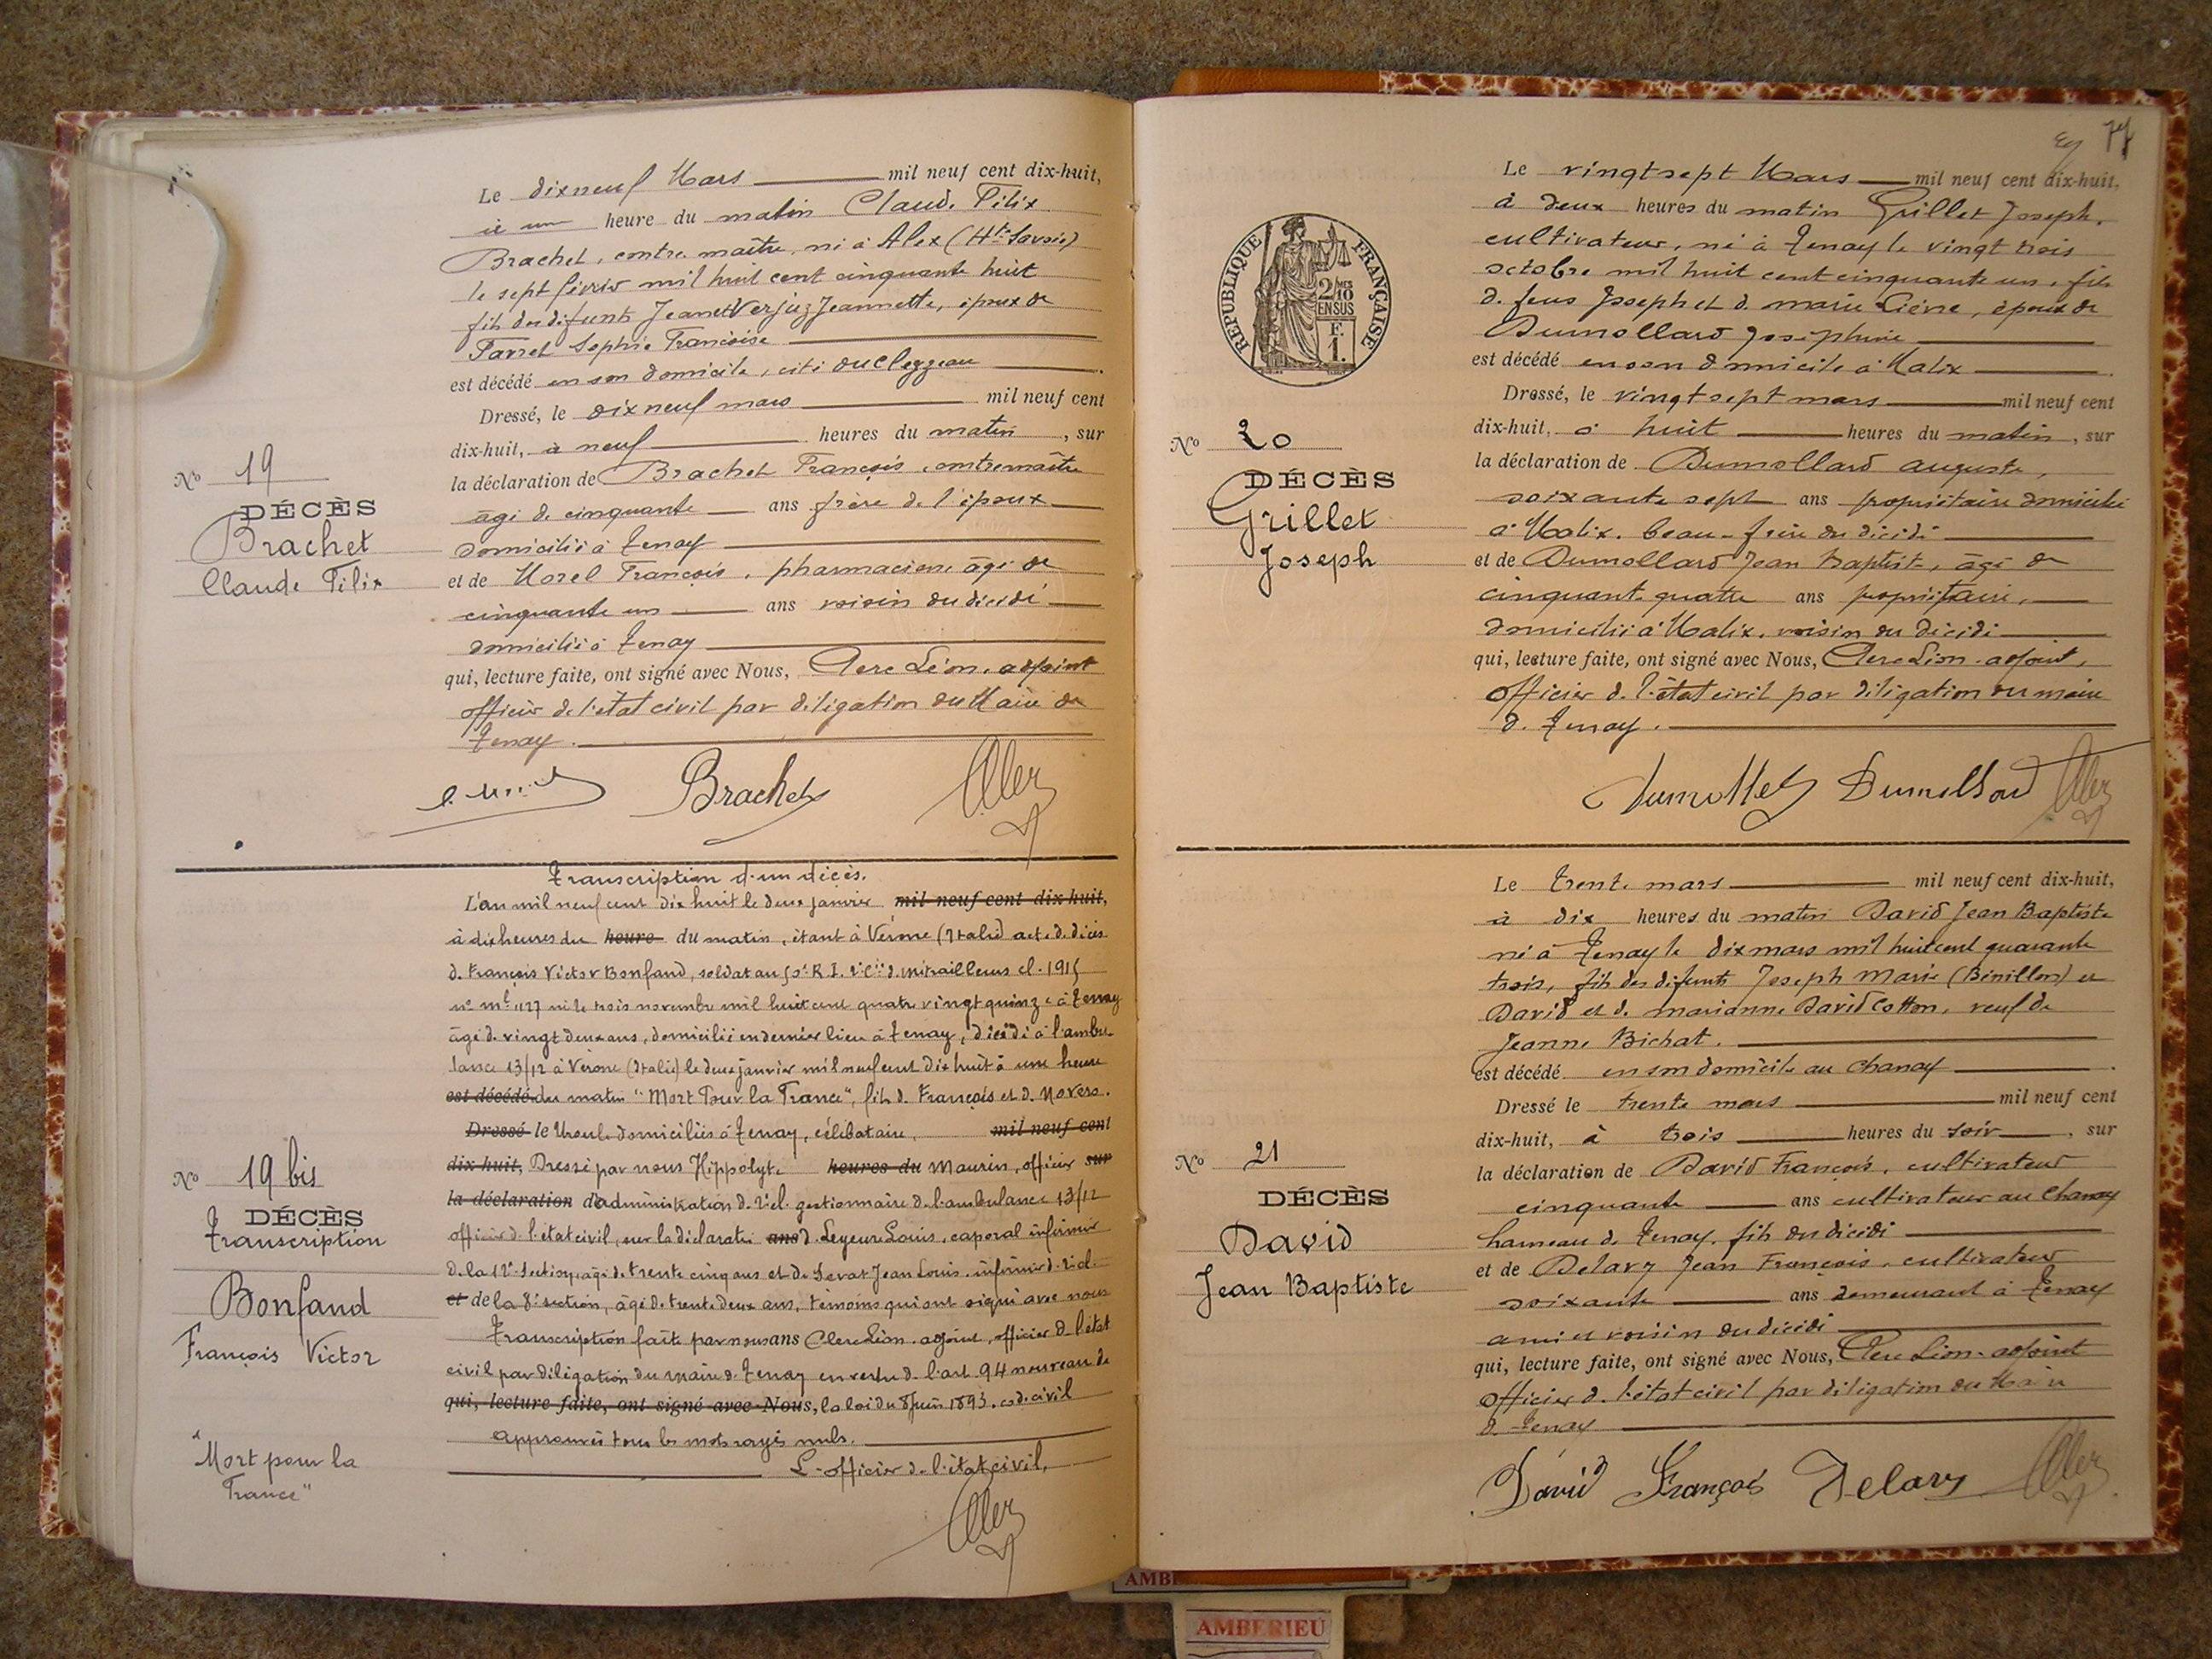 Le dix neuf Mars mil neuf cent dix-huit,
à une heure du matin Claude Félix
Brachet, contre maître, né à Alex (Hte Savoie)
le sept février mil huit cent cinquante huit
fils des défunts Jean et Verjuz Jeannette, époux de
Favret Sophie Françoise
est décédé en son domicile, cité du Cleyzeau
Dressé, le dix neuf mars mil neuf cent
dix-huit, à neuf heures du matin, sur
la déclaration de Brachet François, contremaître
âgé de cinquante ans frère de l'époux
domicilié à Tenay
et de Morel François, pharmacien, âgé de
cinquante un ans voisin du décédé
domicilié à Tenay
qui, lecture faite, ont signé avec Nous, Clerc Léon, adjoint
officier de l'état civil par délégation du Maire de
Tenay.
Brachet
No 19
DÉCÈS
Brachet
Claude Félix
Transcription d'un décès.
L'an mil neuf cent dix huit le deux janvier mil neuf cent dix-huit,
à dix heures du heure du matin, étant à Vérone (Italie) acte de décès
de François Victor Bonfand, soldat au R.I. 2e Cie de mitrailleurs cl. 1915
né le trois novembre mil huit cent quatre vingt quinze à Tenay
âgé de vingt deux ans, domicilié en dernier lieu à Tenay, décédé à l'ambu-
lance 13/12 à Vérone (Italie) le deux janvier mil neuf cent dix huit à une heure
est décédé du matin "Mort Pour la France", fils de François et de
Dressé domiciliés à Tenay, célibataire, mil neuf cent
dix-huit, Dressé par nous Hippolyte heures du Maurin, officier sur
la déclaration d'administration de 2e cl. gestionnaire de l'ambulance 13/12
officier de l'état civil, sur la déclaration ans de Louis, caporal infirmier
de la 12e Section, âgé de trente cinq ans et de Jean Louis, infirmier de 2e cl.
et de la 8e section, âgé de trente deux ans, témoins qui ont signé avec nous
Transcription faite par nous ans Clerc Léon, adjoint, officier de l'état
civil par délégation du maire de Tenay en vertu de l'art 94 nouveau de
qui, lecture faite, ont signé avec Nous, la loi du 8 juin 1893, code civil
Approuvés tous les mots rayés nuls.
L'officier de l'état civil,
No 19 bis
DÉCÈS
Transcription
Bonfand
François Victor
"Mort pour la
France"
77
Le vingt sept Mars mil neuf cent dix-huit,
à deux heures du matin Grillet Joseph,
cultivateur, né à Tenay le vingt trois
octobre mil huit cent cinquante un, fils
de feus Joseph et de Marie Lièvre, époux de
Dumollard Joséphine
est décédé en son domicile à Malix
Dressé, le vingt sept mars mil neuf cent
dix-huit, à huit heures du matin, sur
la déclaration de Dumollard Auguste,
soixante sept ans propriétaire domicilié
à Malix, beau-frère du décédé
et de Dumollard Jean Baptiste, âgé de
cinquante quatre ans propriétaire,
domicilié à Malix, voisin du décédé
qui, lecture faite, ont signé avec Nous, Clerc Léon, adjoint,
officier de l'état civil par délégation du maire
de Tenay.
Dumollard
RÉPUBLIQUE FRANÇAISE
2/10
EN SUS
F.
1.
No 20
DÉCÈS
Grillet
Joseph
Le trente mars mil neuf cent dix-huit,
à dix heures du matin David Jean Baptiste
né à Tenay le dix mars mil huit cent quarante
trois, fils des défunts Joseph Marie (Bénillon) et
David et de Marianne David Cotton, veuf de
Jeanne Bichat.
est décédé en son domicile au Chanay
Dressé le trente mars mil neuf cent
dix-huit, à trois heures du soir, sur
la déclaration de David François, cultivateur
cinquante ans cultivateur au Chanay
hameau de Tenay, fils du décédé
et de Delary Jean François, cultivateur
soixante ans demeurant à Tenay
ami et voisin du décédé
qui, lecture faite, ont signé avec Nous, Clerc Léon, adjoint
officier de l'état civil par délégation du Maire
de Tenay
David François Delary
No 21
DÉCÈS
David
Jean Baptiste
AMBERIEU